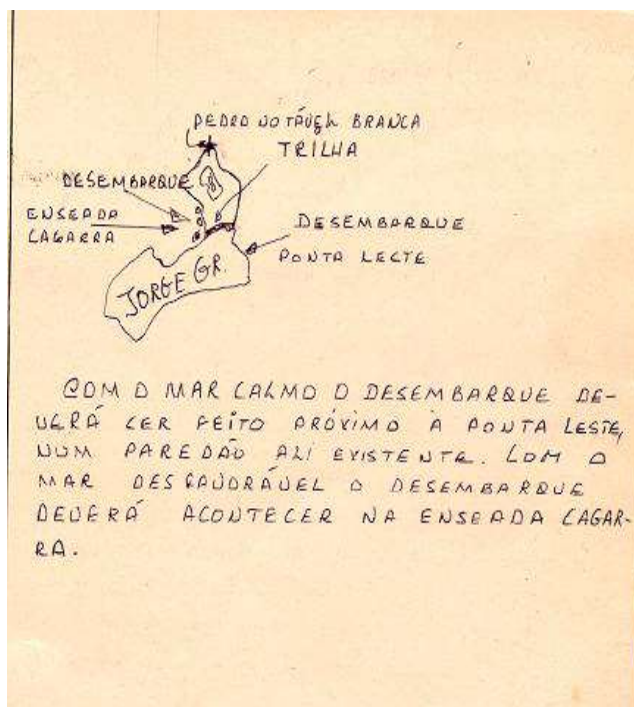 PEDRO NOTÁVEL BRANCA
TRILHA
DESEMBARQUE
ENSEADA
CAGARRA
DESEMBARQUE
PONTA LESTE
JORGE GR.
COM O MAR CALMO O DESEMBARQUE DE-
VERÁ SER FEITO PRÓXIMO À PONTA LESTE,
NUM PAREDÃO ALI EXISTENTE. COM O
MAR DESFAVORÁVEL O DESEMBARQUE
DEVERÁ ACONTECER NA ENSEADA CAGAR-
RA.